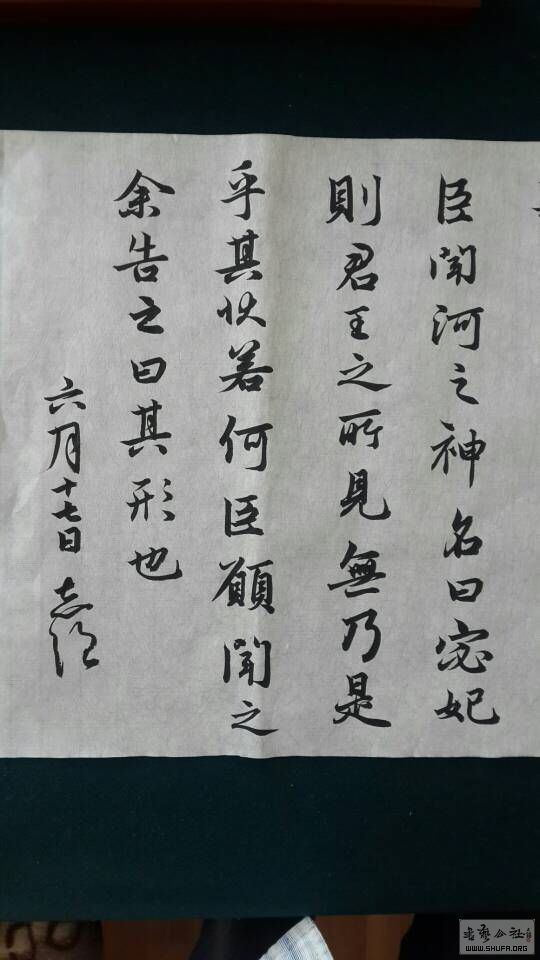 臣聞河之神名曰宓妃
則君王之所見無乃是
乎其狀若何臣願聞之
余告之曰其形也
六月十七日
WWW.SHUFA.ORG